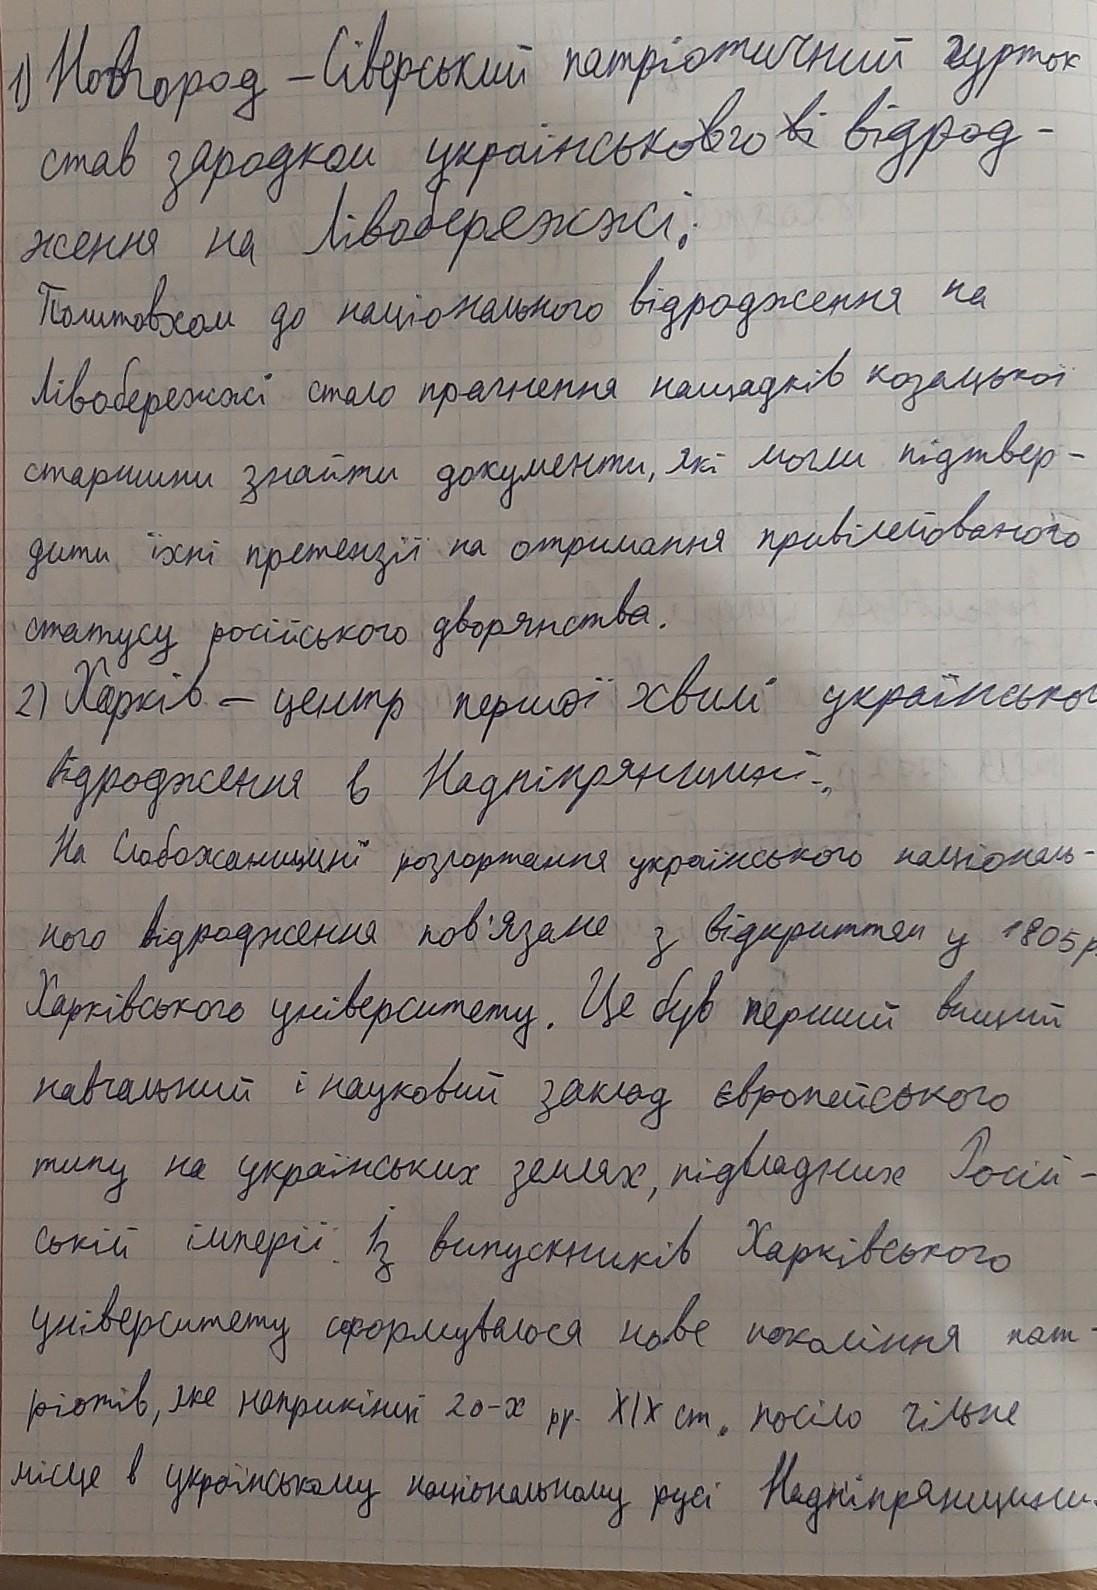 1) Новгород – Сіверський патріотичний гурток
став зародком українського відрод-
ження на Лівобережжі.
Поштовхом до національного відродження на
Лівобережжі стало прагнення нащадків козацької
старшини знайти документи, які могли підтвер-
дити їхні претензії на отримання привілейованого
статусу російського дворянства.
2) Харків – центр першої хвилі українсько
відродження в Наддніпрянщині.
На Слобожанщині розгортання українського національ-
ного відродження пов'язане з відкриттям у 1805 р.
Харківського університету. Це був перший вищий
навчальний і науковий заклад європейського
типу на українських землях, підвладних Росій-
ській імперії. Із випускників Харківського
університету сформувалося нове покоління пат-
ріотів, яке наприкінці 20-х рр. XIX ст. посіло чільне
місце в українському національному русі Наддніпрянщини.